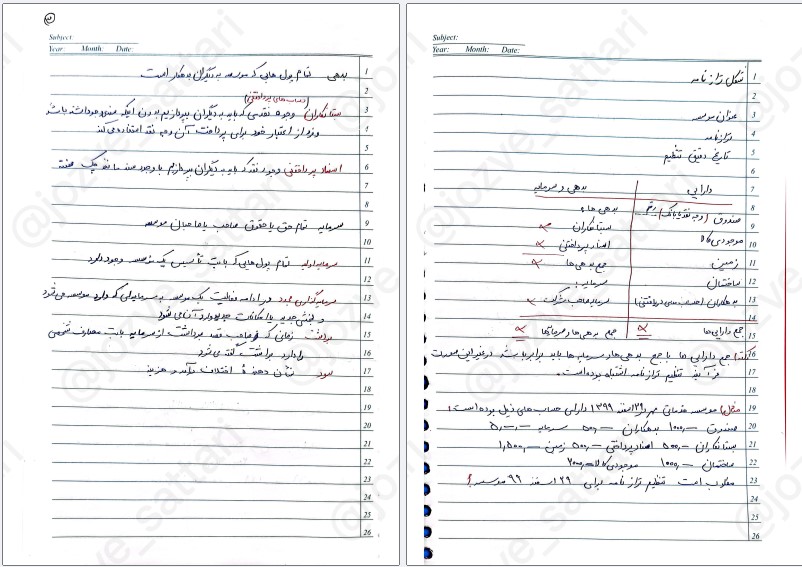 شکل ترازنامه
عنوان موسسه
ترازنامه
تاریخ دقیق تنظیم
دارایی: بدهی و سرمایه
صندوق (وجه نقد یا بانک) رقم بدهی ها:
موجودی کالا بستانکاران ×
زمین: اسناد پرداختنی ×
ساختمان جمع بدهی ها ×
بدهکاران (حساب های دریافتنی) سرمایه:
سرمایه صاحب شرکت ×
جمع دارایی ها × جمع بدهی ها و سرمایه ها ×
نکته) جمع دارایی ها با جمع بدهی ها و سرمایه ها باید برابر باشد در غیر این صورت
فرآیند تنظیم ترازنامه اشتباه بوده است.
مثال) موسسه خدماتی مهر در ۲۹ اسفند ۱۳۹۹ دارای حساب های ذیل بوده است:
صندوق ۱۰۰۰ بدهکاران ۵۰۰ سرمایه
بستانکاران ۵۰۰ اسناد پرداختنی ۵۰۰ زمین ۱,۵۰۰
ساختمان ۱۰۰۰ موجودی کالا ۲۰۰۰
مطلوب است تنظیم ترازنامه برای ۲۹ اسفند ۹۹ موسسه؟
Subject:
Year: Month: Date:
1
2
3
4
5
6
7
8
9
10
11
12
13
14
15
16
17
18
19
20
21
22
23
24
25
26
Subject:
Year: Month: Date:
بدهی تمام پول هایی که موسسه به دیگران بدهکار است
(حساب های پرداختنی)
بستانکاران وجوه نقدی که باید به دیگران بپردازیم بدون اینکه سندی وجود داشته باشد
و فرد از اعتبار خود برای پرداخت آن وجه نقد استفاده می کند
اسناد پرداختنی وجوه نقد که باید به دیگران بپردازیم با وجود سند مانند چک سفته
سرمایه تمام حق یا حقوق صاحب یا صاحبان موسسه
سرمایه اولیه تمام پول هایی که بابت تأسیس یک موسسه وجود دارد
سرمایه گذاری مجدد در ادامه فعالیت یک موسسه به سرمایه ای که وارد موسسه می شود
و بخش جدید یا امکانات جدید وارد آن می شود
برداشت زمانی که صاحب قصد برداشت از سرمایه بابت مصارف شخصی
را دارد برداشت گفته می شود
سود نشان دهنده اختلاف درآمد و هزینه
1
2
3
4
5
6
7
8
9
10
11
12
13
14
15
16
17
18
19
20
21
22
23
24
25
26
@jozve_sattari